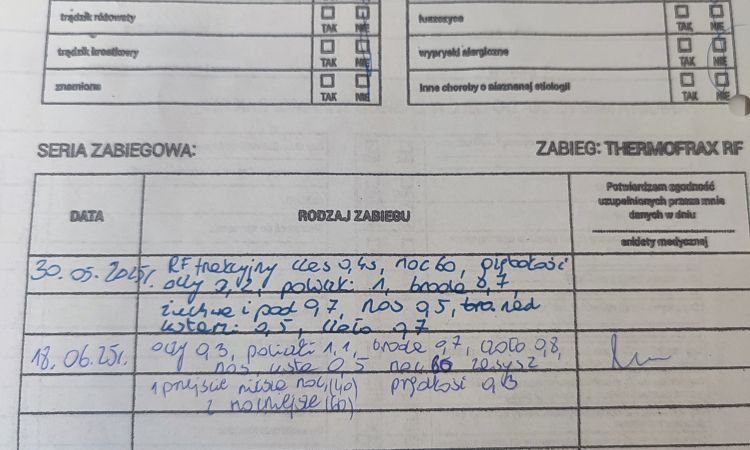 trądzik różowaty TAK NIE
łuszczyca TAK NIE
trądzik krostkowy TAK NIE
wypryski alergiczne TAK NIE
znamiona TAK NIE
Inne choroby o nieznanej etiologii TAK NIE
SERIA ZABIEGOWA:
ZABIEG: THERMOFRAX RF
DATA
RODZAJ ZABIEGU
Potwierdzam zgodność
uzupełnionych przeze mnie
danych w dniu
ankiety medycznej
30.05.2025r. RF frakcyjny czas 0,4s, moc 60, głębokość
oczy 0,2, policzki 1, broda 0,7,
żuchwa i pod 0,7, nos 0,5, broda nad
ustami 0,5, czoło 0,7
18.06.25r. oczy 0,3, policzki 1,1, broda 0,7, czoło 0,8,
nos, usta 0,5 moc 60
1 przejście niższa moc (40) prędkość 0,3
2 mocniejsze (60)